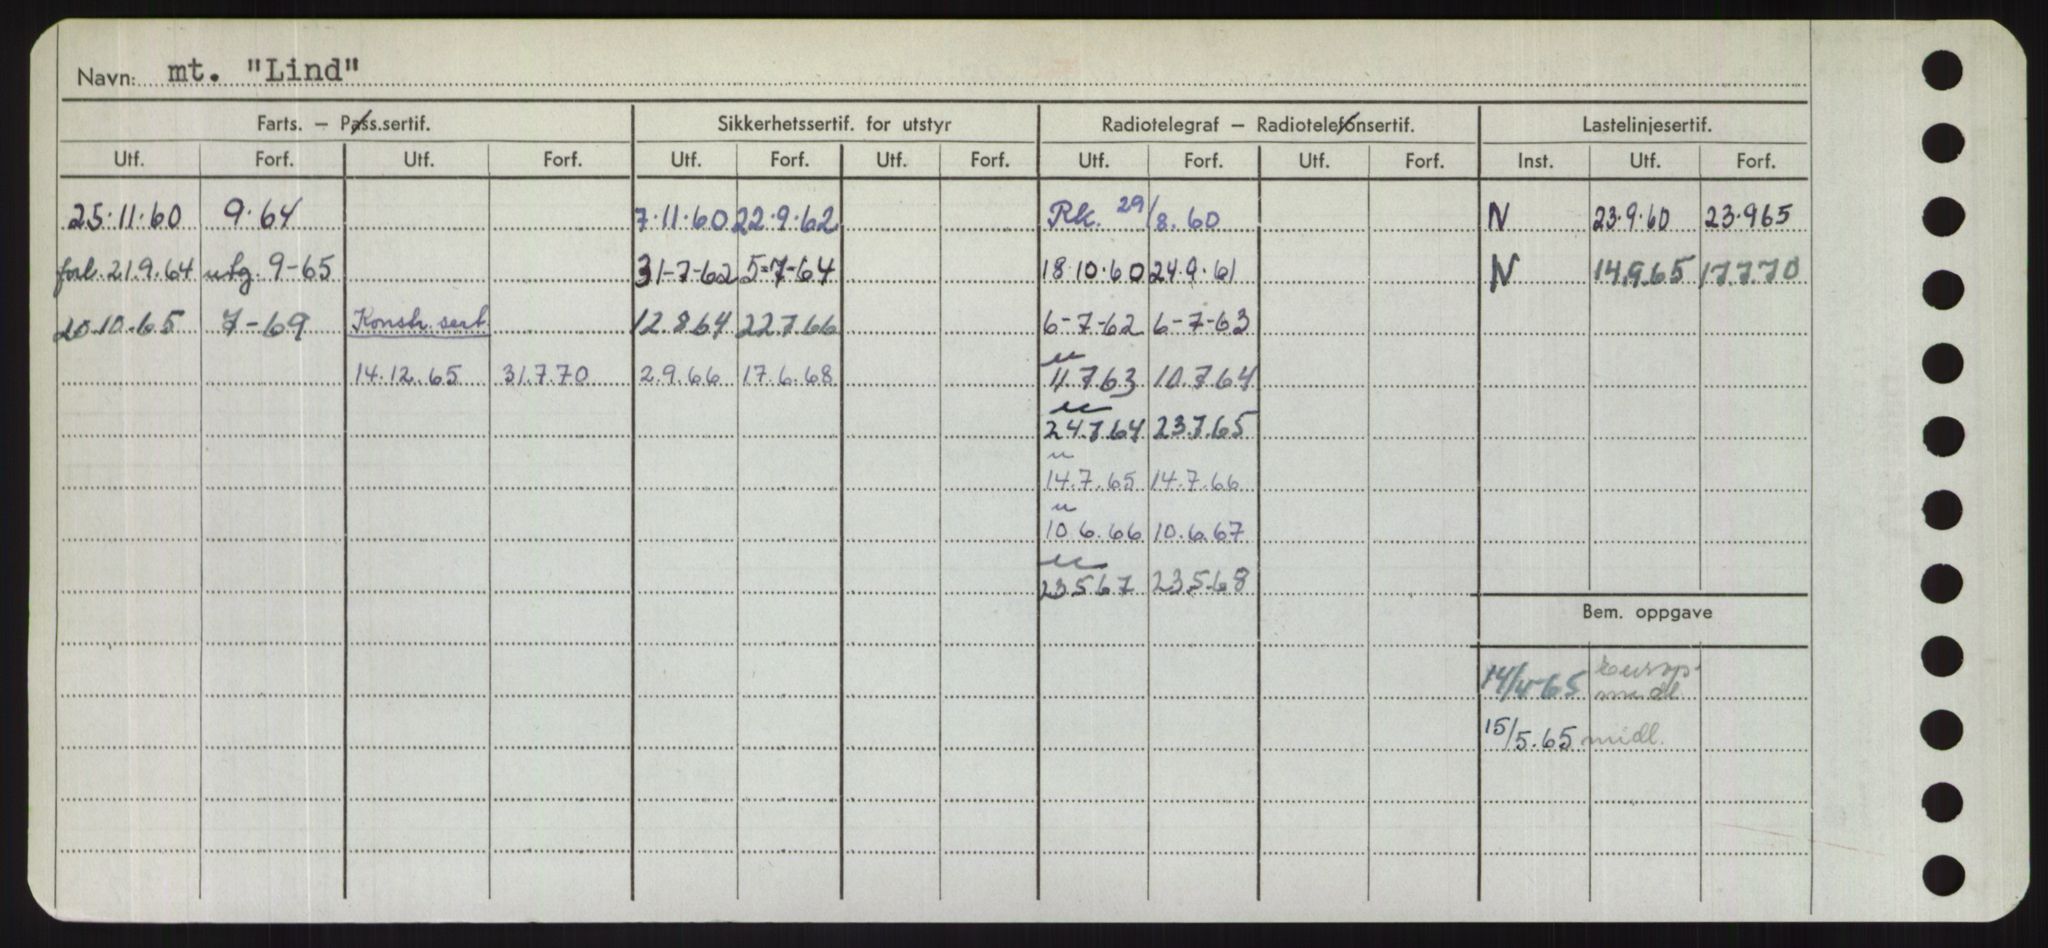 Navn: mt. "Lind"
Farts. — Pass.sertif. Sikkerhetssertif. for utstyr Radiotelegraf — Radiotelefonsertif. Lastelinjesertif.
Utf. Forf. Utf. Forf. Utf. Forf. Utf. Forf. Utf. Forf. Utf. Forf. Inst. Utf. Forf.
25.11.60 9.64 7.11.60 22.9.62 Rk. 29/8.60 N 23.9.60 23.965
forl. 21.9.64 utg. 9-65 31-7-62 5-7-64 18.10.60 24.9.61 N 14.9.65 17.7.70
20.10.65 7-69 Konstr. sert. 12.8.64 22.7.66 6-7-62 6-7-63
14.12.65 31.7.70 2.9.66 17.6.68 11.7.63 10.7.64
24.7.64 23.7.65
14.7.65 14.7.66
10.6.66 10.6.67
23.5.67 23.5.68
Bem. oppgave
14/4-65 europ.
midl.
15/5.65 midl.